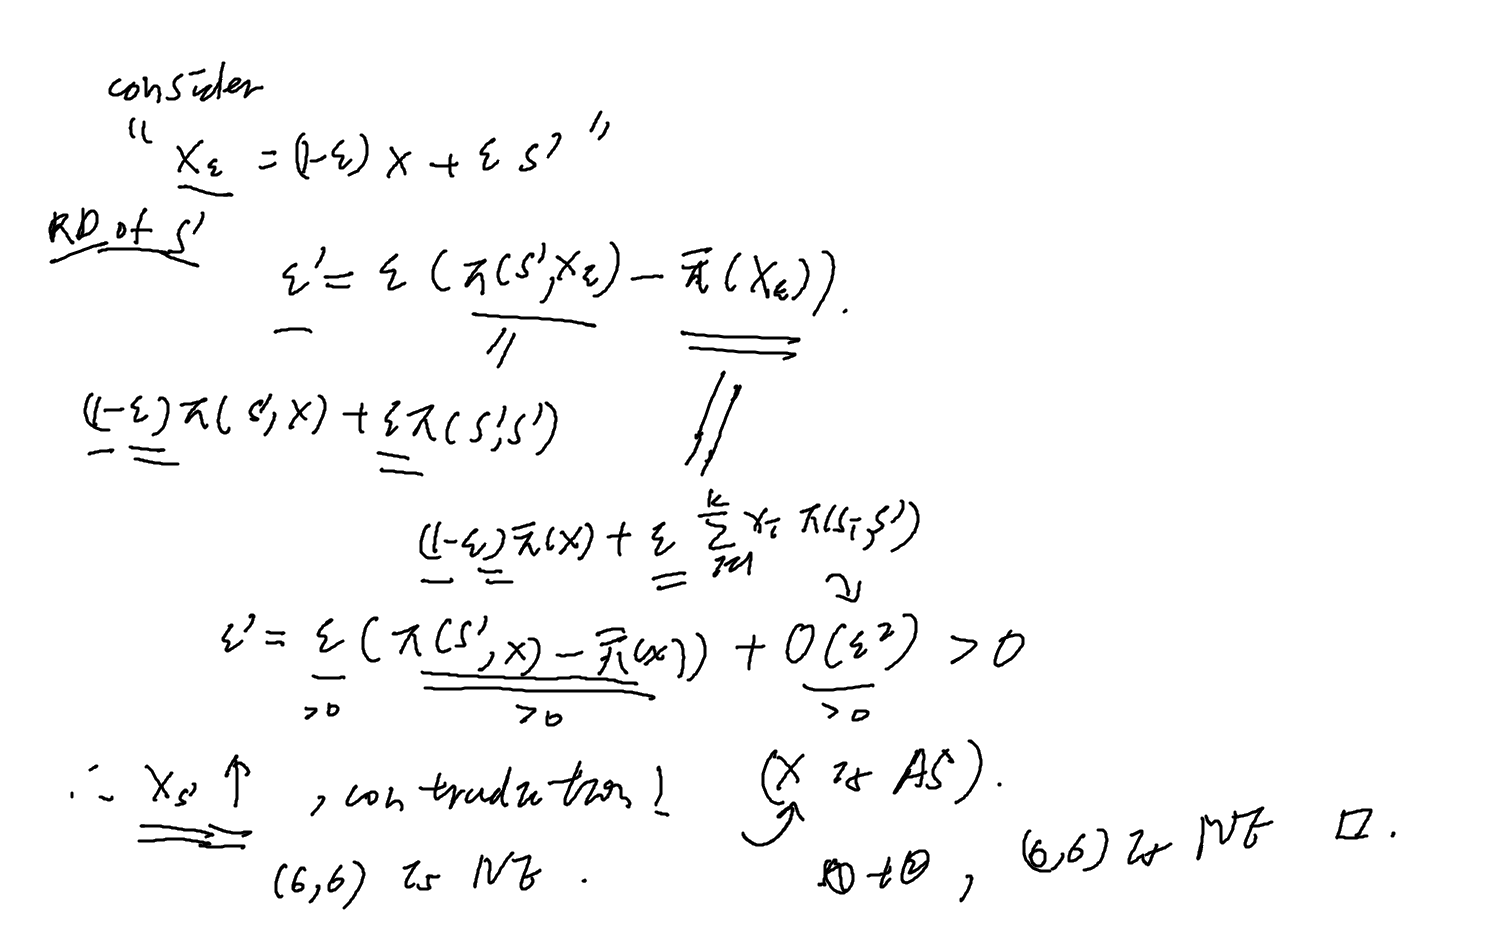 consider
"x_ε = (1-ε) x + ε s'"
RD of s'
ε' = ε (π(s', x_ε) - π̄(x_ε)).
(1-ε) π(s', x) + ε π(s', s')
(1-ε) π̄(x) + ε ∑_{i=1}^{k} x_i π(s_i, s')
ε' = ε (π(s', x) - π̄(x)) + O(ε²) > 0
>0 >0 >0
∴ x_{s'} ↑, contradiction! (x is AS).
(6,6) is NE. ① + ②, (6,6) is NE □.